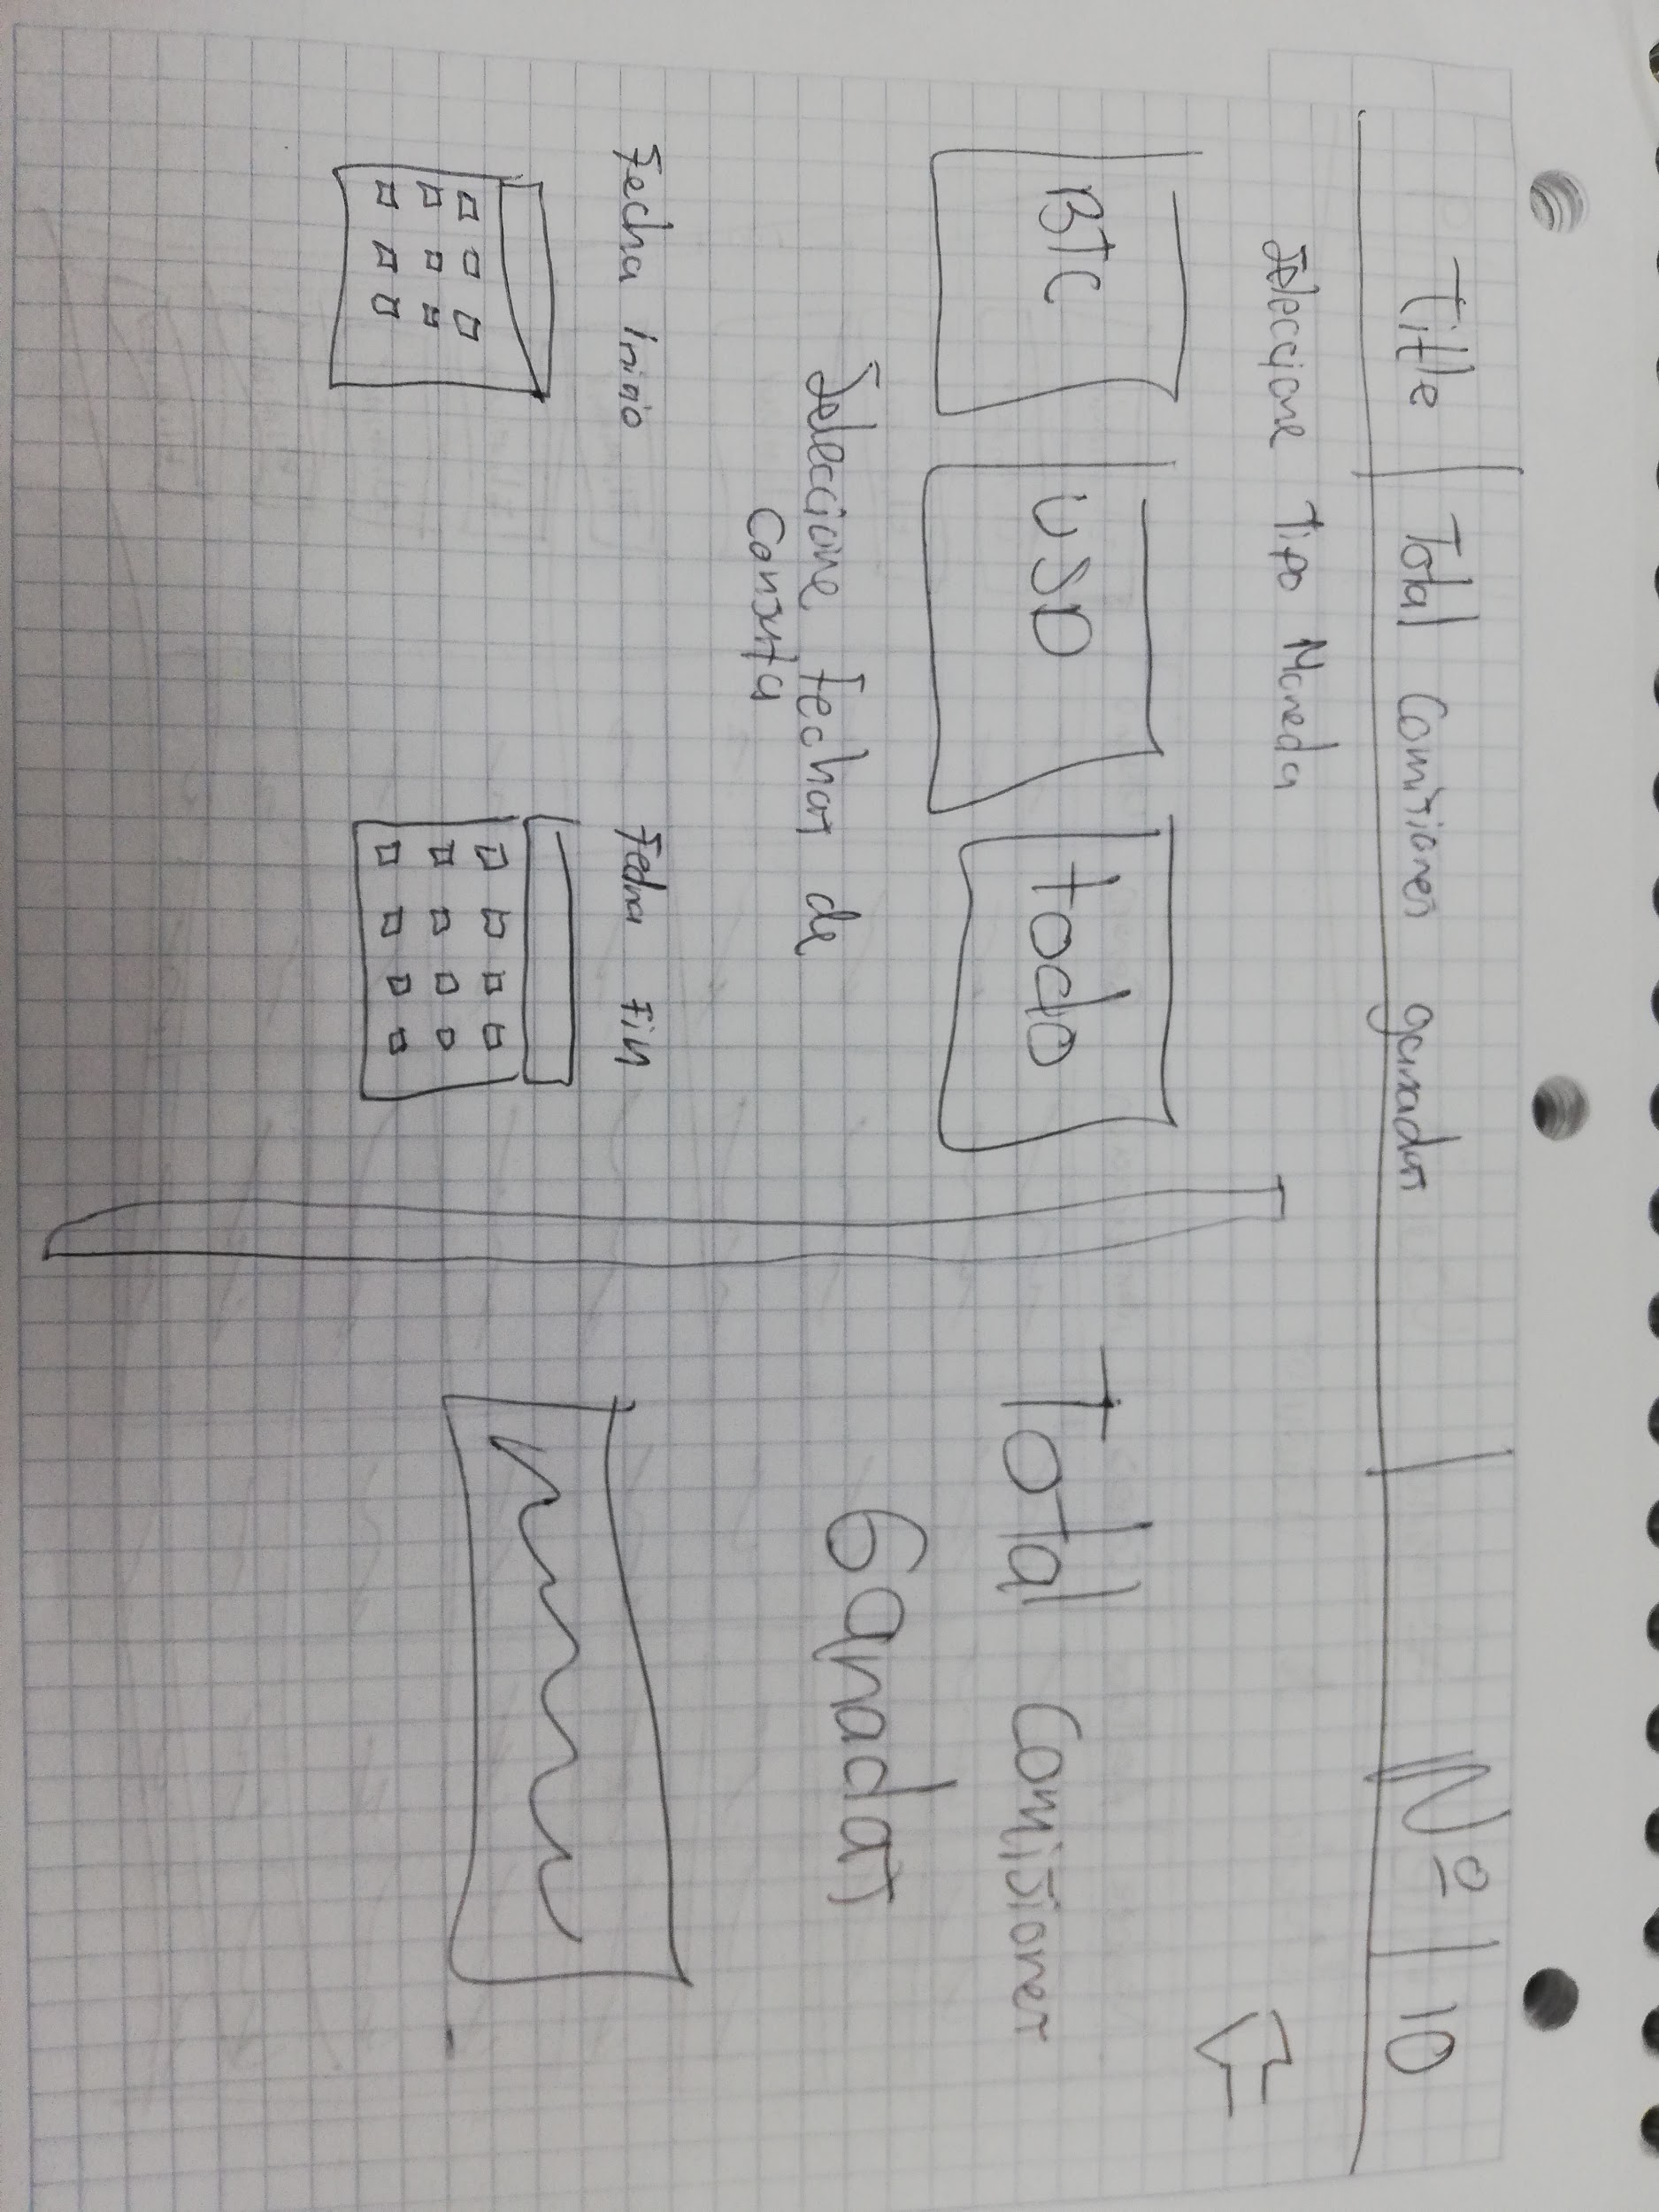 Title | Total Comisiones ganadas | Nº | 10
Seleccione Tipo Moneda
BTC
USD
todo
Seleccione Fechas de
Consulta
Fecha Inicio
Fecha Fin
Total Comisiones
Ganadas